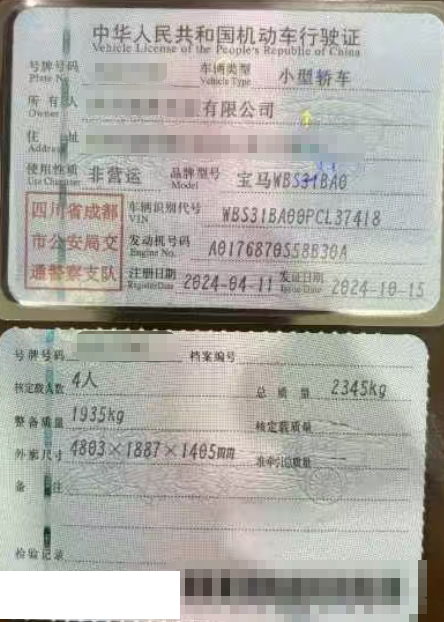 中华人民共和国机动车行驶证
Vehicle License of the People's Republic of China
号牌号码 车辆类型 小型轿车
Plate No. Vehicle Type
所有人 有限公司
Owner
住址
Address
使用性质 非营运 品牌型号 宝马WBS31BA0
Use Character Model
四川省成都
市公安局交
通警察支队
车辆识别代号 WBS31BA00PCL37418
VIN
发动机号码 A0176870S58B30A
Engine No.
注册日期 2024-04-11 发证日期 2024-10-15
Register Date Issue Date
号牌号码 档案编号
核定载人数 4人 总质量 2345kg
整备质量 1935kg 核定载质量 --
外廓尺寸 4803×1887×1405mm 准牵引总质量 --
备注
检验记录